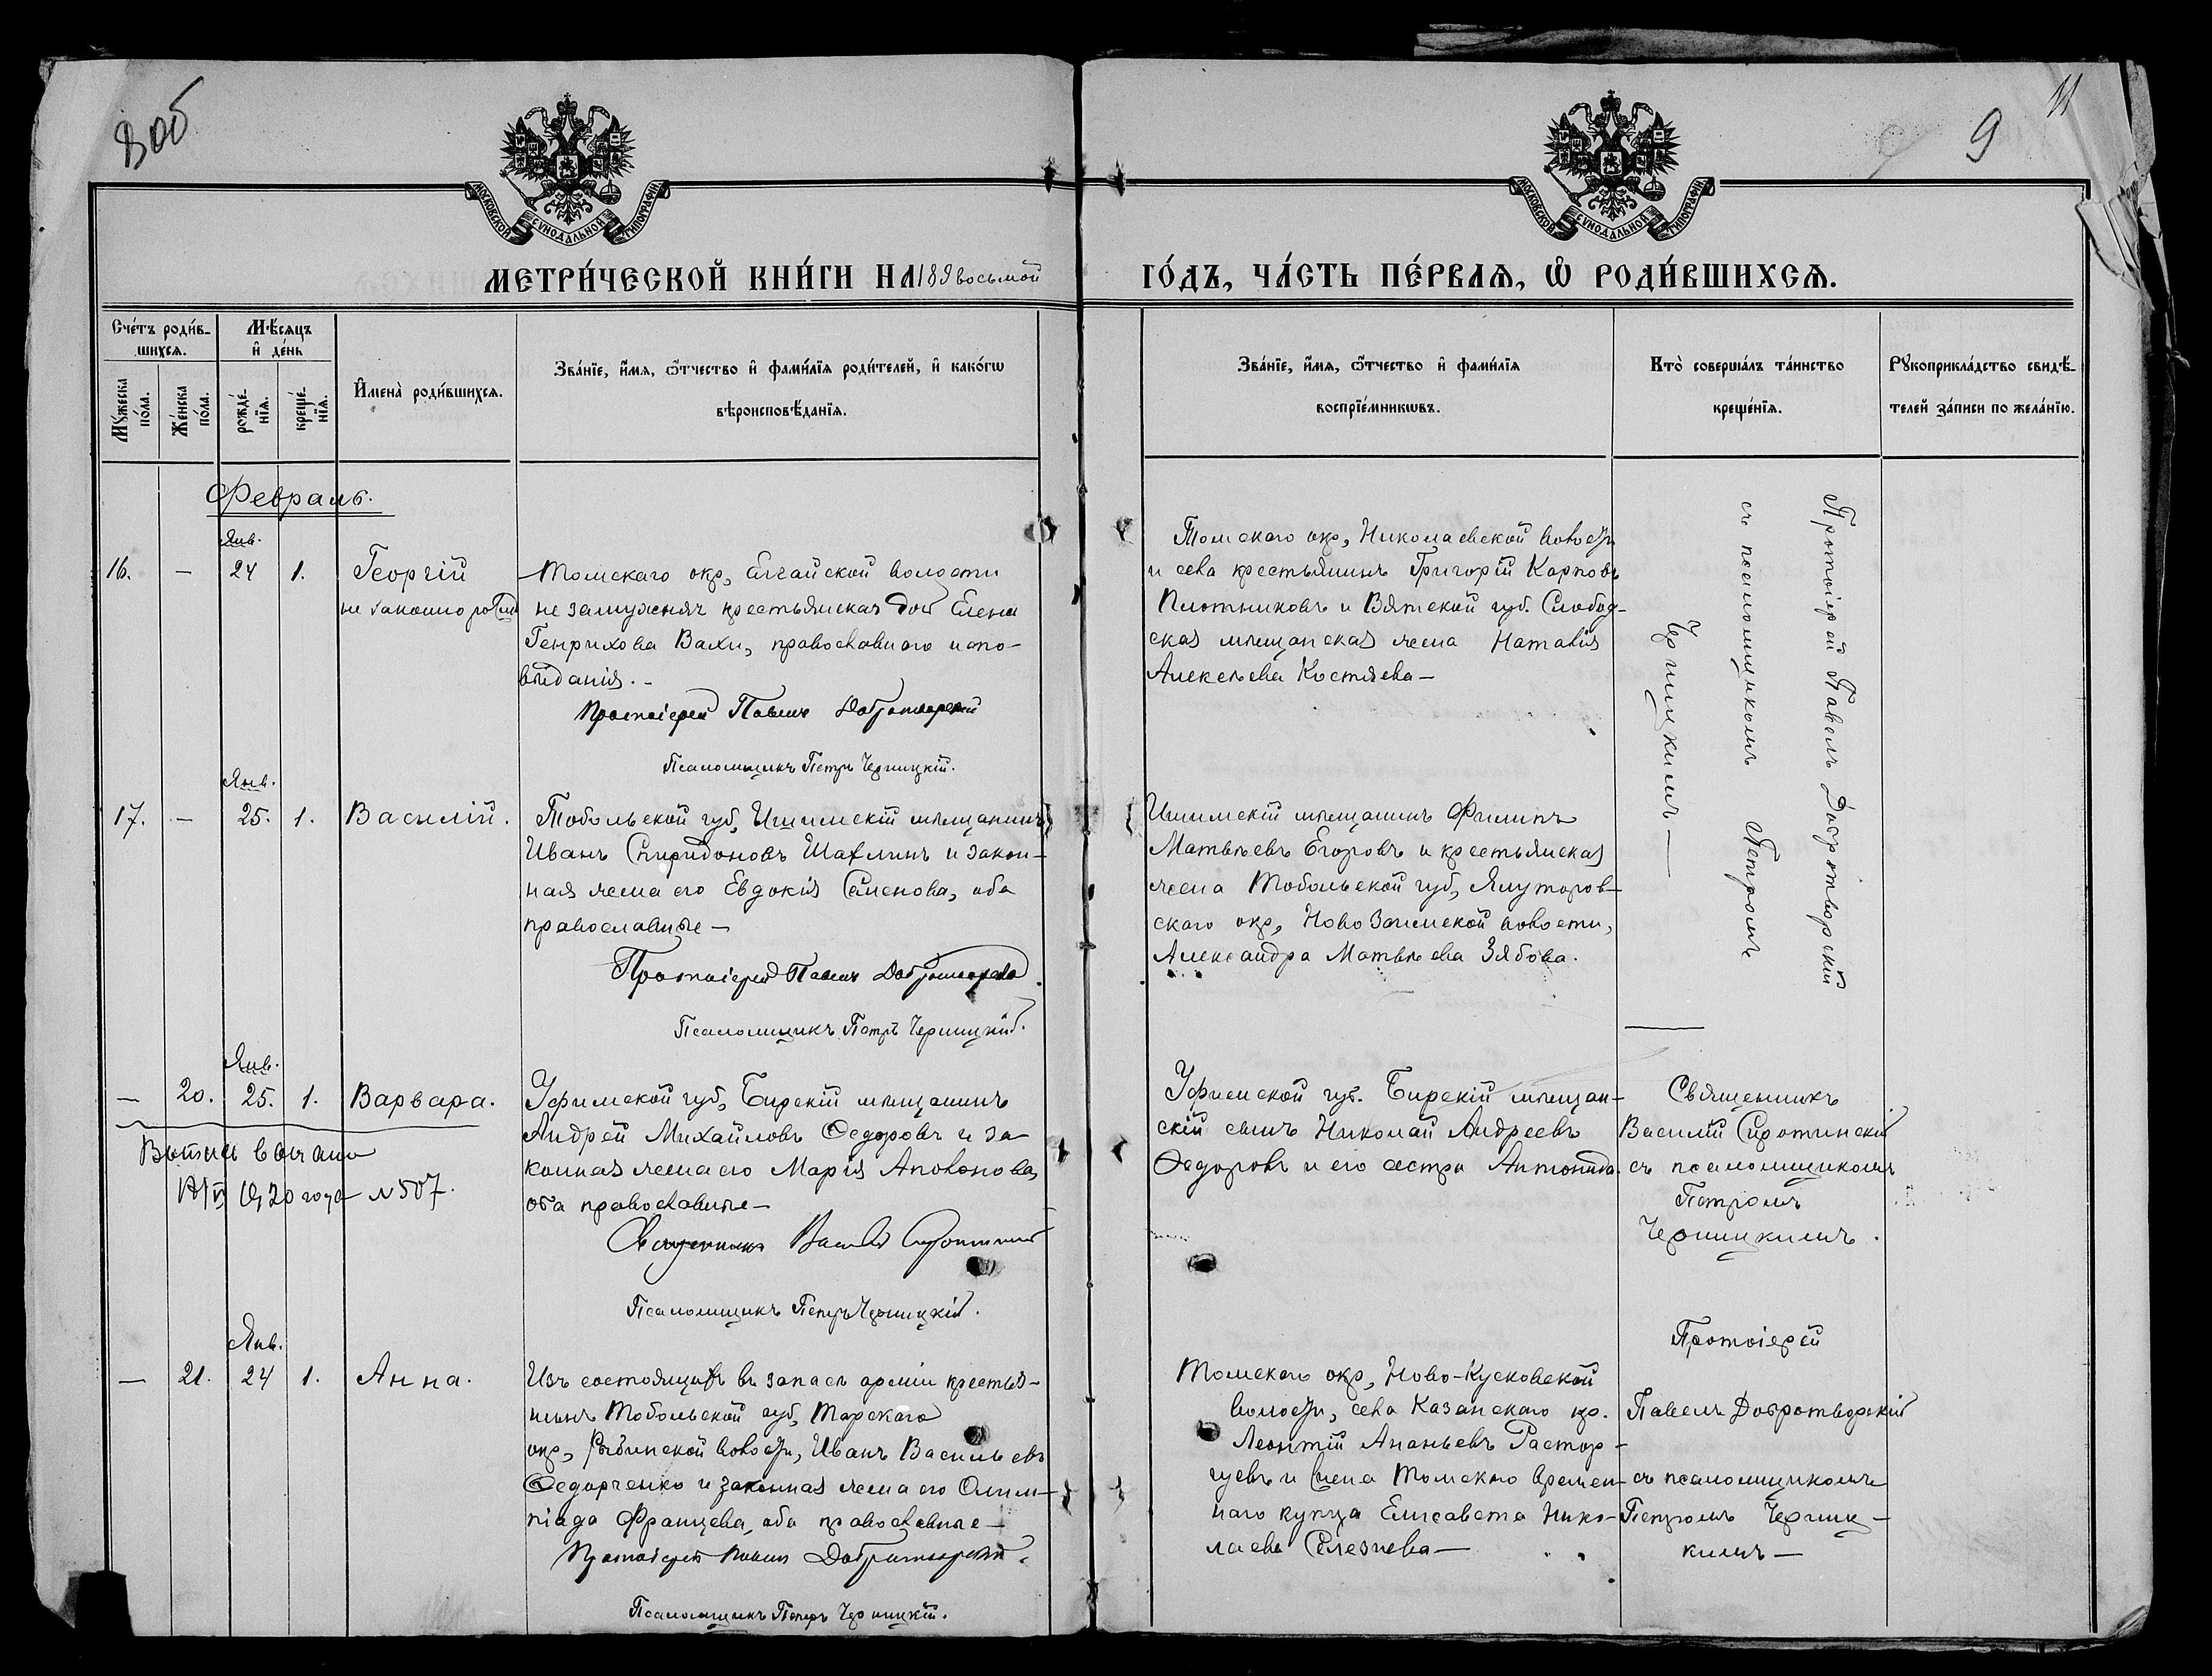 8 об
9
11
МОСКОВСКОЙ СѴНОДАЛЬНОЙ ТИПОГРАФІИ
МОСКОВСКОЙ СѴНОДАЛЬНОЙ ТИПОГРАФІИ
МЕТРИ́ЧЕСКОЙ КНИ́ГИ НА 189восьмой ГО́ДЪ, ЧА́СТЬ ПЕ́РВАѦ, Ѽ РОДИ́ВШИХСѦ.
Сче́тъ роди́в-
шихсѧ.
Мꙋ́жеска по́ла.
Же́нска по́ла.
Мѣ́сѧцъ
и҆ де́нь
рожде́-
нїѧ.
креще́-
нїѧ.
И҆мена̀ роди́вшихсѧ.
Зва́нїе, и҆́мѧ, ѻ҆́тчество и҆ фами́лїѧ роди́телей, и҆ како́гѡ
вѣроисповѣ́данїѧ.
Зва́нїе, и҆́мѧ, ѻ҆́тчество и҆ фами́лїѧ
воспрїе́мникѡвъ.
Кто̀ соверша́лъ та́инство
креще́нїѧ.
Рꙋкоприкла́дство свидѣ́-
телей за́писи по жела́нїю.
Февраль.
Янв.
16. — 24 1. Георгій
не законнорожд
Томскаго окр, Елгайской волости
незамужняя крестьянская дочь Елена
Генрихова Вахи, православнаго испо-
вѣданія. -
Протоіерей Павелъ Добротворскій
Псаломщикъ Петръ Черницкій.
Томскаго окр, Николаевской волости
и села крестьянинъ Григорій Карповъ
Плотниковъ и Вятской губ. Слобод-
ская мѣщанская жена Наталія
Алексѣева Костяева —
Протоіерей Павелъ Добротворскій
съ псаломщикомъ Петромъ
Черницкимъ —
Янв.
17. — 25. 1. Василій.
Тобольской губ, Ишимскій мѣщанинъ
Иванъ Спиридоновъ Шахлинъ и закон-
ная жена его Евдокія Семенова, оба
православные —
Протоіерей Павелъ Добротворскій
Псаломщикъ Петръ Черницкій.
Ишимскій мѣщанинъ Филипъ
Матвѣевъ Егоровъ и крестьянская
жена Тобольской губ, Ялуторов-
скаго окр, Ново Заимской волости,
Александра Матвѣева Зябова.
Янв.
— 20. 25. 1. Варвара.
Выпись выдана
1920 года №507.
Уфимской губ, Бирскій мѣщанинъ
Андрей Михайловъ Федоровъ и за
конная жена его Марія Аполонова,
оба православные —
Священникъ Василій Сиротинскій
Псаломщикъ Петръ Черницкій.
Уфимской губ. Бирскій мѣщан-
скій сынъ Николай Андреевъ
Федоровъ и его сестра Антонида.
Священникъ
Василій Сиротинскій
съ псаломщикомъ
Петромъ
Черницкимъ.
Янв.
— 21. 24 1. Анна.
Изъ состоящихъ въ запасѣ арміи крестья-
нинъ Тобольской губ, Тарскаго
окр, Рыбинской волости, Иванъ Васильевъ
Федорченко и законная жена его Олим-
піада Францева, оба православные —
Протоіерей Павелъ Добротворскій.
Псаломщикъ Петръ Черницкій.
Томскаго окр, Ново-Кусковской
волости, села Казанскаго кр.
Леонтій Ананьевъ Растор-
гуевъ и жена Томскаго времен-
наго купца Елисавета Нико-
лаева Селезнева —
Протоіерей
Павелъ Добротворскій
съ псаломщикомъ
Петромъ Черниц-
кимъ —